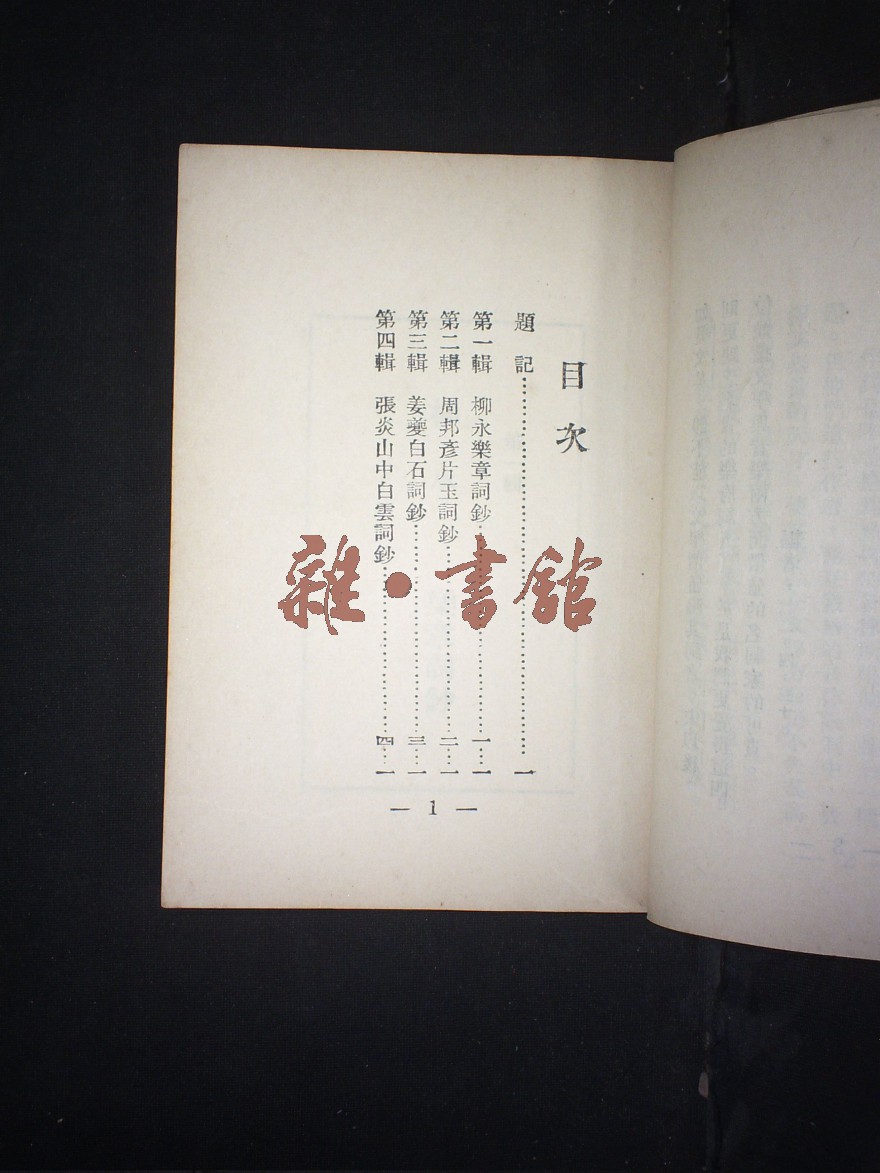 目次
題記……一
第一輯 柳永樂章詞鈔……一一
第二輯 周邦彥片玉詞鈔……二一
第三輯 姜夔白石詞鈔……三一
第四輯 張炎山中白雲詞鈔……四一
— 1 —
雜·書館